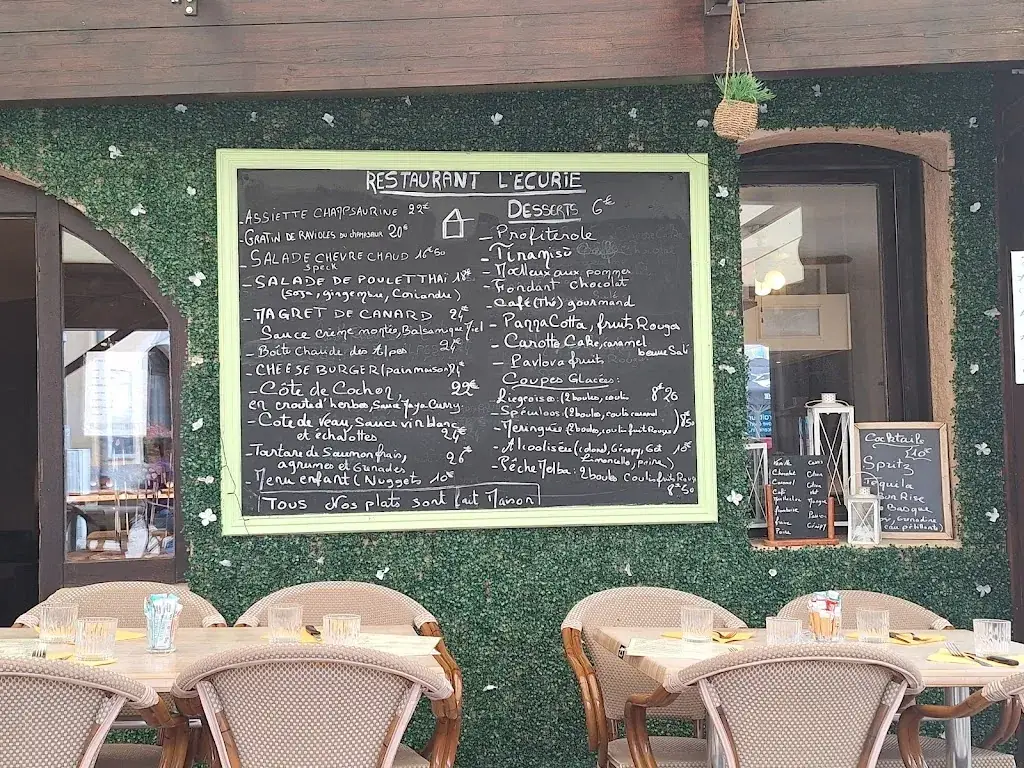 RESTAURANT L'ECURIE
- ASSIETTE CHAMPSAURINE 22€
- GRATIN DE RAVIOLES DU CHAMPSAUR 20€
- SALADE CHEVRE CHAUD 16€50
speck
- SALADE DE POULET THAI 18€
(soja, gingembre, Coriandre)
- MAGRET DE CANARD 24€
Sauce crème montée, Balsamique Miel
- Boîte Chaude des Alpes 24€
- CHEESE BURGER (pain maison) 21€
- Côte de Cochon, 22€
en crouté d'herbes, Sauce Maya Curry
- Cote de Veau, Sauce vin blanc
et échalottes 24€
- Tartare de Saumon frais, 26€
agrumes et Grenades
- Menu enfant (Nuggets 10€
Tous Nos plats sont fait Maison
DESSERTS 6€
- Profiterole
- Tiramisù
- Moelleux aux pommes
- Fondant chocolat
- Café (Thé) gourmand
- Panna Cotta, fruits Rouges
- Carotte Cake, caramel
beurre Salé
- Pavlova fruits Rouges
Coupes Glacées:
- Liegeoise: (2 boules, coulis 8€20
- Spéculoos: (2 boules, coulis caramel)
- Meringuée (2 boules, coulis fruits Rouges) 8€50
- Alcoolisée (colonel, Génépy, Get 10€
Limoncello, poire)
- Pêche Melba: 2 boules Coulis fruits Rouges
8€50
Cocktails
10€
Spritz
Tequila
Sun Rise
Basque
Grenadine
eau pétillante)
Vanille
Chocolat
Caramel
Café
Menthe
framboise
fraise
Poire
Cassis
Citron
Coco
Mangue
Passion
Génépy